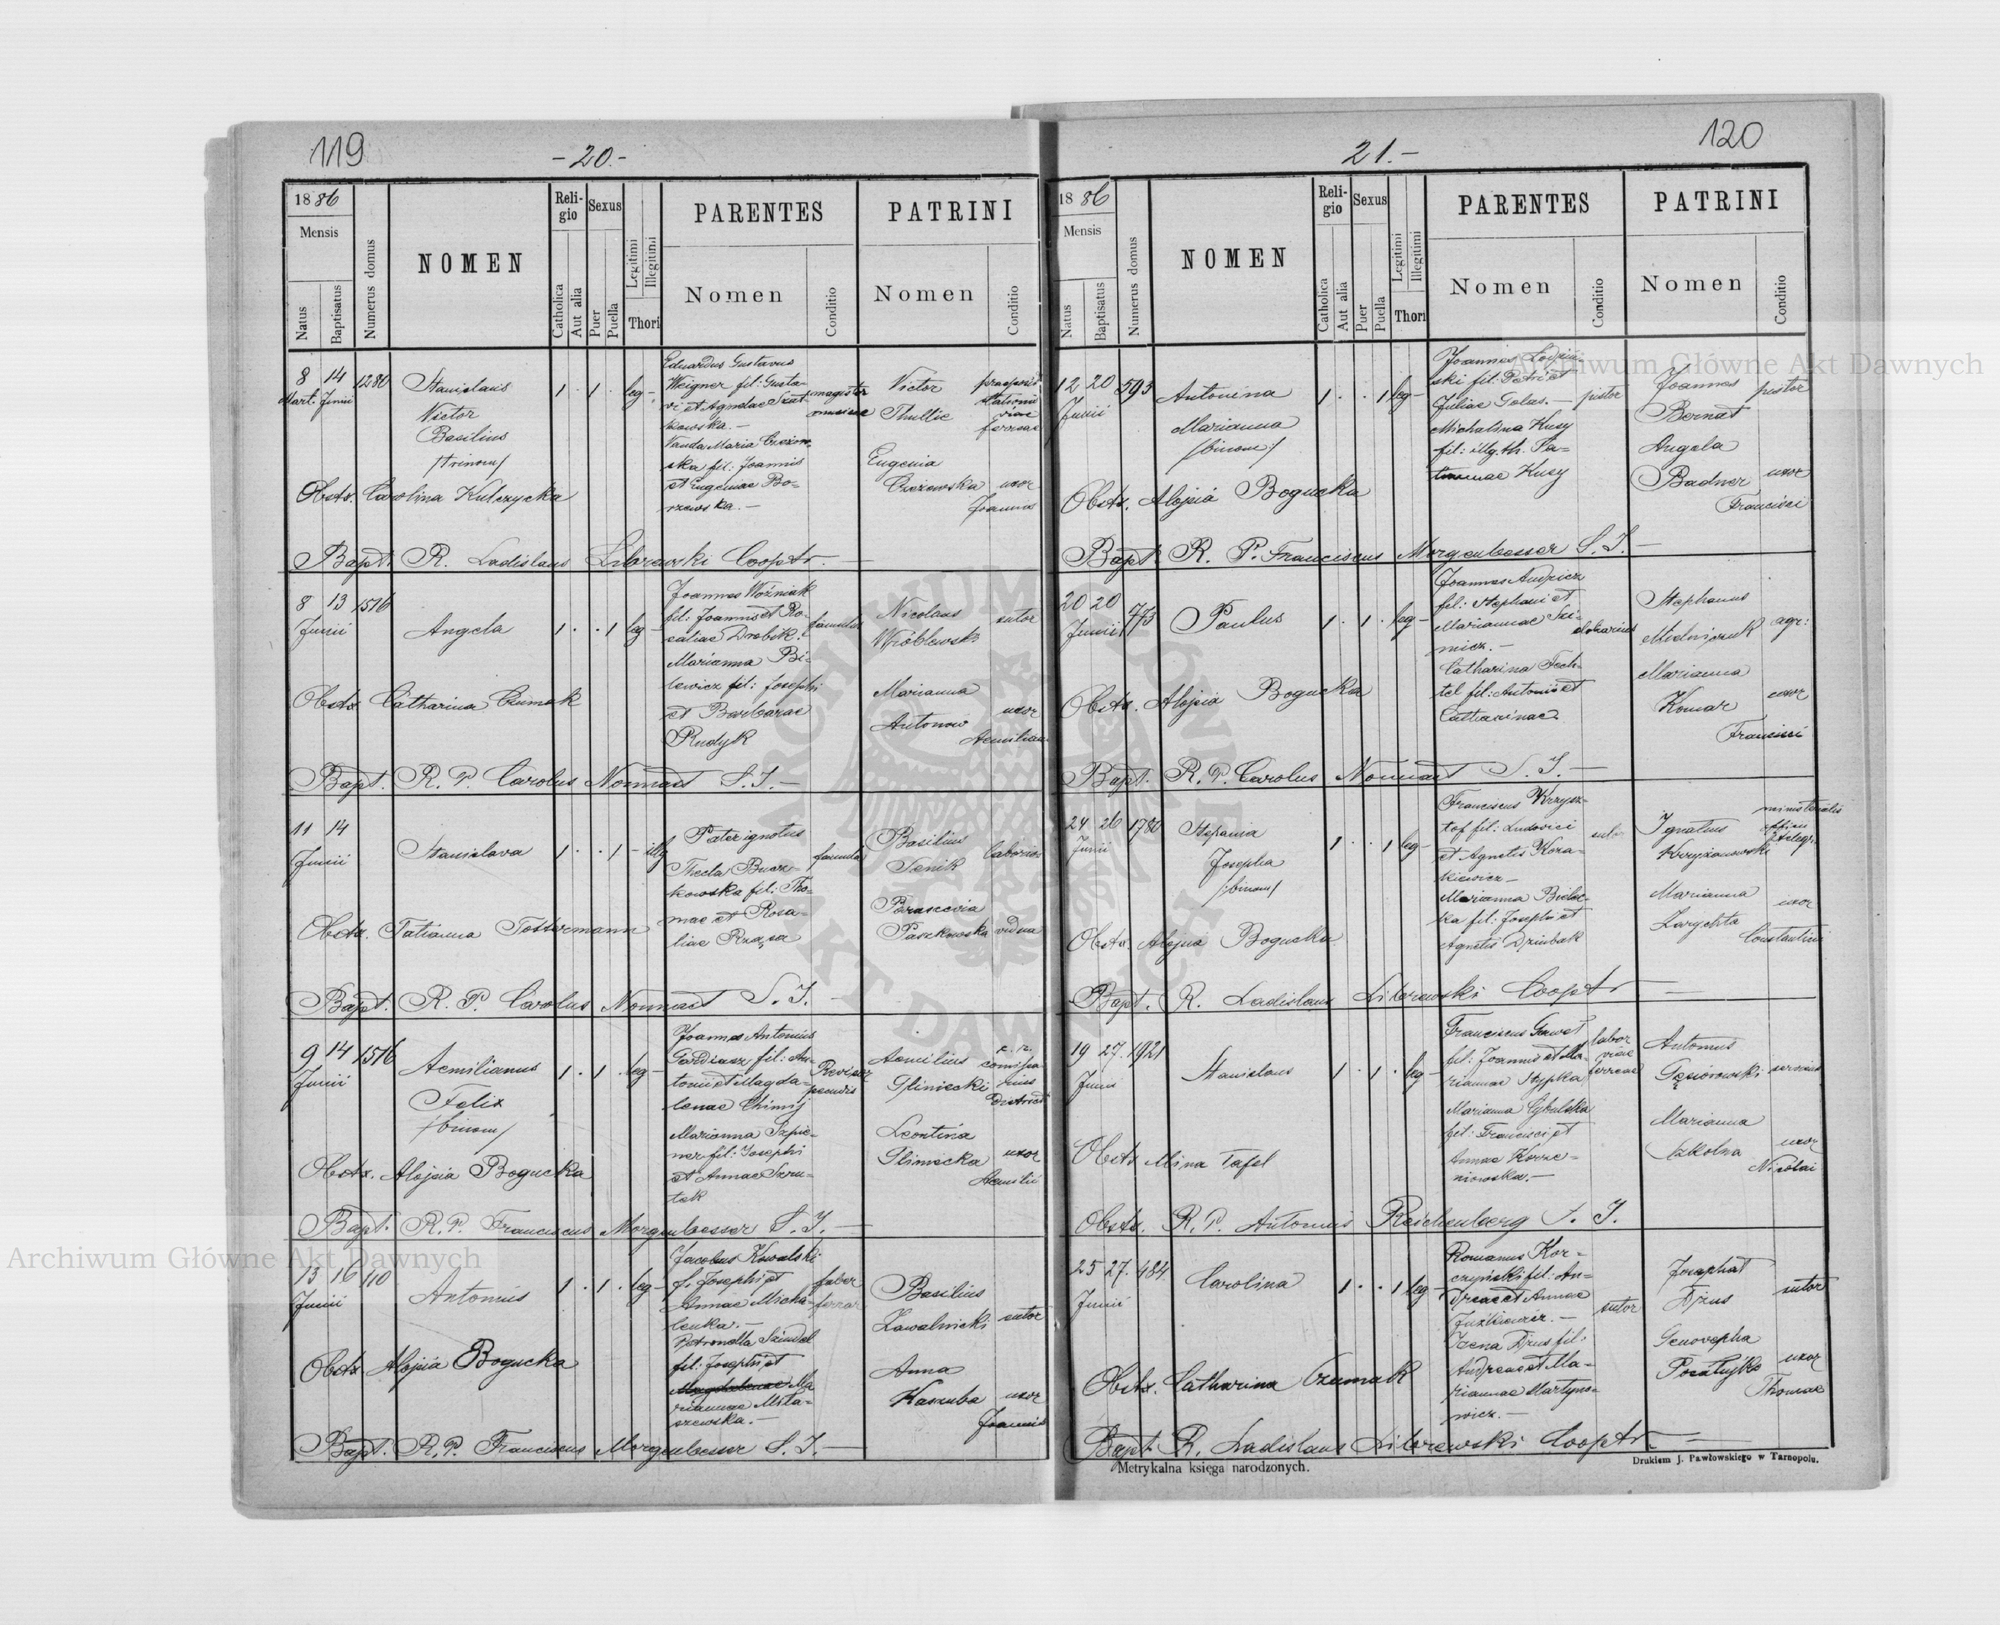 119
-20.-
1886
Mensis
Natus
Baptisatus
Numerus domus
NOMEN
Reli-
gio
Catholica
Aut alia
Sexus
Puer
Puella
Legitimi
Illegitimi
Thori
PARENTES
Nomen
Conditio
PATRINI
Nomen
Conditio
8 14 1280
Mart. Junii
Stanislaus
Victor
Basilius
/trinom/
1 . 1 . leg -
Eduardus Gustavus
Weigner fil: Gusta-
vi et Agnelae Szat-
kowska. -
Vanda Maria Czezow-
ska fil: Joannis
et Eugeniae Bo-
rzewska. -
magister
musicae
Victor
Thullie
Eugenia
Czeżowska uxor
Joannis
Obstx. Carolina Kulczycka
Bapt. R. Ladislaus Librewski Cooptr. -
8 13 1516
Junii
Angela
1 . . 1 leg -
Joannes Woźniak
fil: Joannis et Ro-
saliae Drobik.
Marianna Bi-
lewicz fil: Josephi
et Barbarae
Rudyk
famulus
Nicolaus
Wróblewski
sutor
Marianna
Antonow
uxor
Aemiliani
Obstx. Catharina Czumak
Bapt. R. P. Carolus S. J. -
11 14
Junii
Stanislava
1 . . 1 - illg
Pater ignotus
Thecla Bucz-
kowska fil: Tho-
mae et Rosa-
liae Rząsa
famula
Basilius
Senik
Parascevia
Paszkowska vidua
Obstx. Tatianna Tostermann
Bapt. R. P. Carolus S. J. -
9 14 1516
Junii
Aemilianus
Felix
/binom/
1 . 1 . leg -
Joannes Antonius
fil: An-
toni et Magda-
lenae
Marianna Szpie-
ner fil: Josephi
et Annae Szru-
tek
Revisor
pecudis
Aemilius
Sliniecki
Leontina
Sliniecka uxor
Aemilii
Obstx. Alojsia Bogucka
Bapt. R. P. Franciscus Morgenbesser S. J. -
13 16 110
Junii
Antonius
1 . 1 . leg -
Jacobus Kowalski
f. Josephi et
Annae Micha-
lenka. -
Petronella Szindel
fil: Josephi et
Magdalenae Ma
riannae Mita-
szewska. -
faber
ferrar
Basilius
Zawalnicki sutor
Anna
Kaszuba uxor
Joannis
Obstx. Alojsia Bogucka
Bapt. R. P. Franciscus Morgenbesser S. J. -
120
21.-
1886
Mensis
Natus
Baptisatus
Numerus domus
NOMEN
Reli-
gio
Catholica
Aut alia
Sexus
Puer
Puella
Legitimi
Illegitimi
Thori
PARENTES
Nomen
Conditio
PATRINI
Nomen
Conditio
12 20 593
Junii
Antonina
Marianna
/binom/
1 . . 1 leg -
Joannes
ski fil: Petri et
Juliae Golas. -
Michalina Kusy
fil: illg. th. Pa-
Kusy
pistor
Joannes
Bernat
pistor
Angela
Badner uxor
Francisci
Obstx. Alojsia Bogucka
Bapt. R. P. Franciscus Morgenbesser S. J. -
20 20 773
Junii
Paulus
1 . 1 . leg -
Joannes Audzicz
fil: Stephani et
Mariannae Szi-
micz. -
Catharina Tech-
tel fil: Antonii et
Catharinae
Stephanus
agr:
Marianna
Komar uxor
Francisci
Obstx. Alojsia Bogucka
Bapt. R. P. Carolus S. J. -
24 26 1780
Junii
Stefania
Josepha
/binom/
1 . . 1 leg -
Franciscus Krzysz-
tof fil: Ludovici
et Agnetis Koza-
kiewicz -
Marianna Bielec-
ka fil: Josephi et
Agnetis Dziubak
Ignatius
Krzyżanowski
ministerialis
telegr.
Marianna
Zarychta
uxor
Constantini
Obstx. Alojsia Bogucka
Bapt. R. Ladislaus Librewski Cooptr -
19 27. 1921
Junii
Stanislaus
1 . 1 . leg -
Franciscus Gawet
fil: Joannis et Ma-
riannae Stypka
Marianna Cybulska
fil: Francisci et
Annae Korze-
niowska. -
labor
viae
ferreae
Antonius
Gąsiorowski
Marianna
Szkolna
uxor
Nicolai
Obstx Mina Tafel
Obstx. R. P. Antonius Reichenberg S. J.
25 27. 484
Junii
Carolina
1 . . 1 leg -
Romanus Kor-
czyński fil: An-
dreae et Annae
Juśkiewicz. -
Xena Dzus fil:
Andreae et Ma-
riannae Martyno-
wicz. -
sutor
Josaphat
Dzus
sutor
Genovepha
uxor
Thomae
Obstx. Catharina Czumak
Bapt. R. Ladislaus Librewski Cooptr. -
Metrykalna księga narodzonych.
Drukiem J. Pawłowskiego w Tarnopolu.
Archiwum Główne Akt Dawnych
Archiwum Główne Akt Dawnych
ARCHIWUM GŁÓWNE AKT DAWNYCH